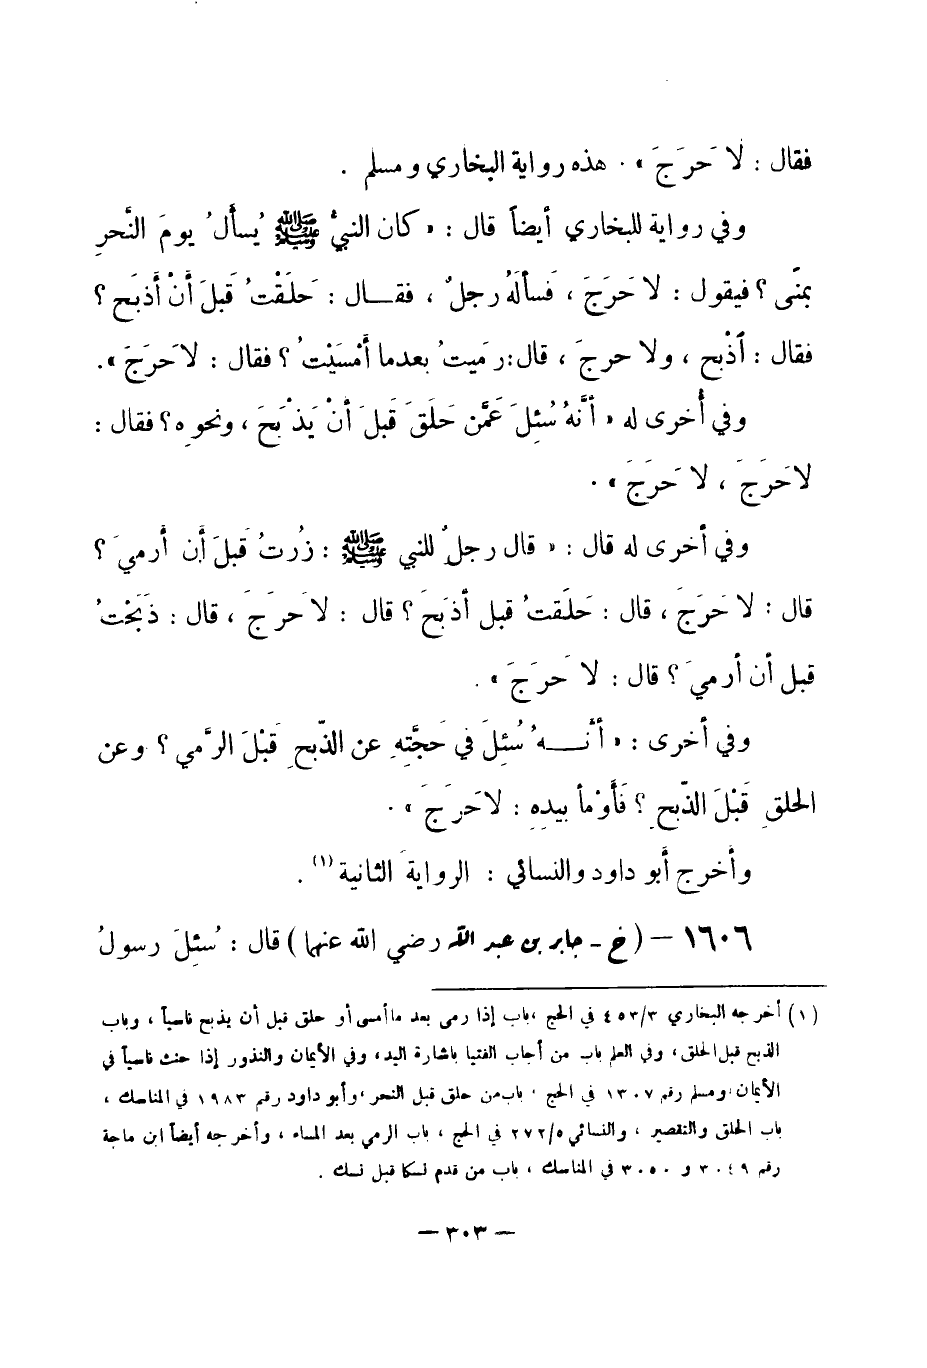 فقال : لا حَرَجَ » . هذه رواية البخاري ومسلم .
وفي رواية للبخاري أيضاً قال : « كان النبيُّ ﷺ يُسأَلُ يومَ النَّحرِ
بمنًى ؟ فيقول : لا حَرَجَ ، فَسأَلَهُ رجلٌ ، فقـــال : حَلَقْتُ قَبلَ أنْ أذبَح ؟
فقال : اُذْبح ، ولا حرجَ ، قال : رَميتُ بعدما أمْسَيْتُ ؟ فقال : لا حَرَجَ » .
وفي أُخرى له « أنَّهُ سُئِلَ عَمَّن حَلَقَ قَبلَ أنْ يَذْبَحَ ، ونحوِه ؟ فقال :
لا حَرَجَ ، لا حَرَجَ » .
وفي أخرى له قال : « قال رجلٌ للنبي ﷺ : زُرتُ قَبلَ أن أرميَ ؟
قال : لا حَرَجَ ، قال : حَلَقتُ قبل أذبَحَ ؟ قال : لا حَرَجَ ، قال : ذَبَحْتُ
قبل أن أرميَ ؟ قال : لا حَرَجَ » .
وفي أخرى : « أنَّـــهُ سُئِلَ في حَجَّتِهِ عن الذَّبحِ قَبْلَ الرَّمي ؟ وعن
الحلقِ قَبْلَ الذَّبحِ ؟ فَأَوْمأ بيدِهِ : لا حَرَجَ » .
وأخرج أبو داود والنسائي : الروايةَ الثانية (١) .
١٦٠٦ – ( خ - جابر بن عبد الله رضي الله عنهما ) قال : سُئِلَ رسولُ
(١) أخرجه البخاري ٤٥٣/٣ في الحج ، باب إذا رمى بعد ما أمسى أو حلق قبل أن يذبح ناسياً ، وباب
الذبح قبل الحلق ، وفي العلم باب من أجاب الفتيا باشارة اليد ، وفي الأيمان والنذور إذا حنث ناسياً في
الأيمان ، ومسلم رقم ١٣٠٧ في الحج ، باب من حلق قبل النحر ، وأبو داود رقم ١٩٨٣ في المناسك ،
باب الحلق والتقصير ، والنسائي ٢٧٢/٥ في الحج ، باب الرمي بعد المساء ، وأخرجه أيضاً ابن ماجة
رقم ٣٠٤٩ و ٣٠٥٠ في المناسك ، باب من قدم نسكا قبل نسك .
– ٣٠٣ –